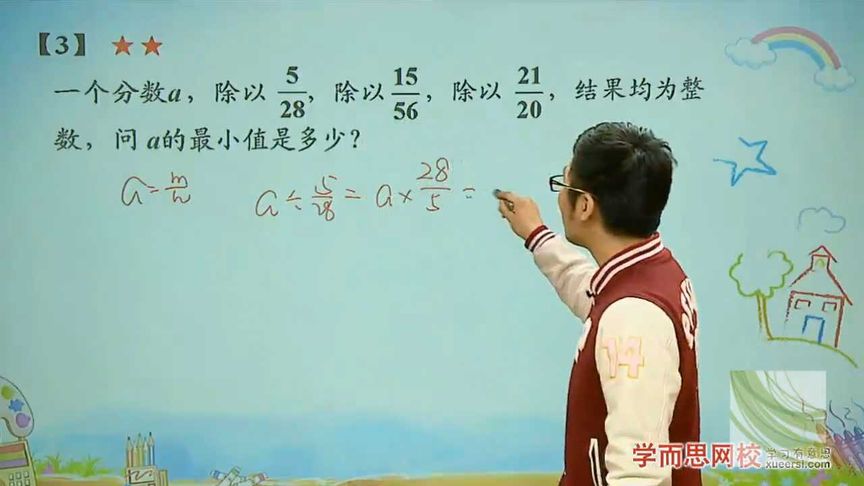 【3】★★
一个分数a，除以 5/28，除以 15/56，除以 21/20，结果均为整
数，问 a的最小值是多少？
a=m/n a÷5/28=a×28/5=
14
学而思网校
学习有意思
xueersi.com